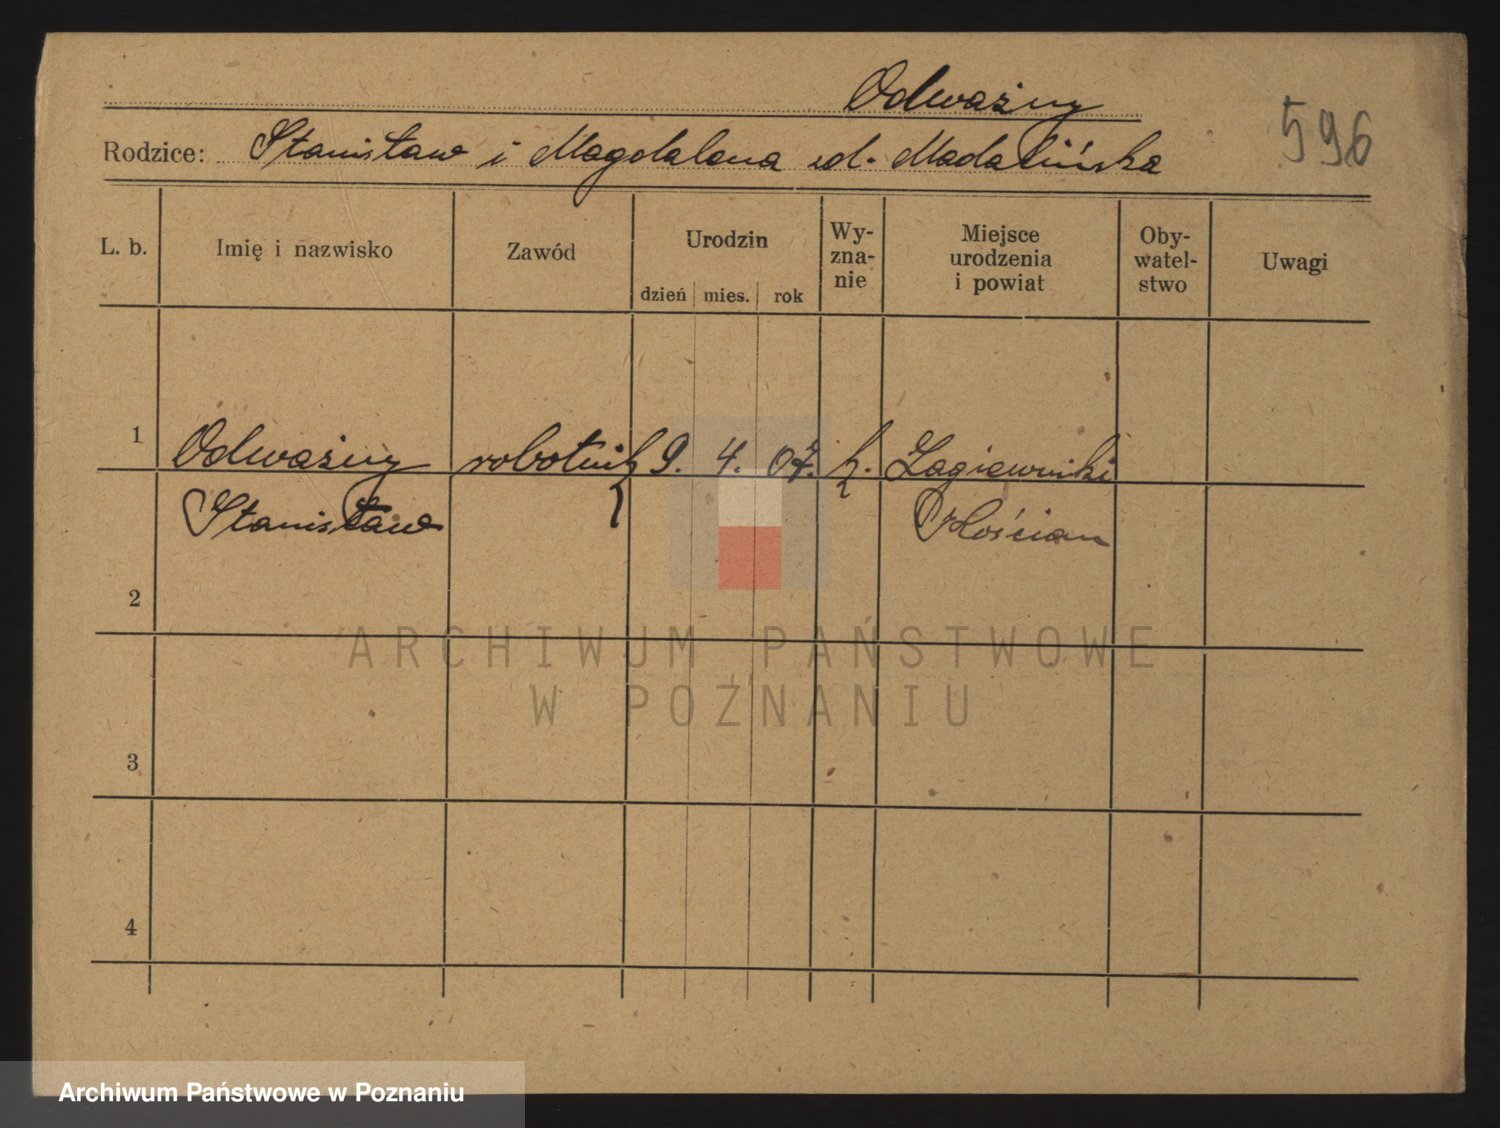 Odważny
596
Rodzice: Stanisław i Magdalena zd. Madalińska
L. b. Imię i nazwisko Zawód Urodzin dzień mies. rok Wy-zna-nie Miejsce urodzenia i powiat Oby-watel-stwo Uwagi
1 Odważny robotnik 9. 4. 07. k. Łagiewniki
Stanisław Kościan
2
3
4
ARCHIWUM PAŃSTWOWE
W POZNANIU
Archiwum Państwowe w Poznaniu